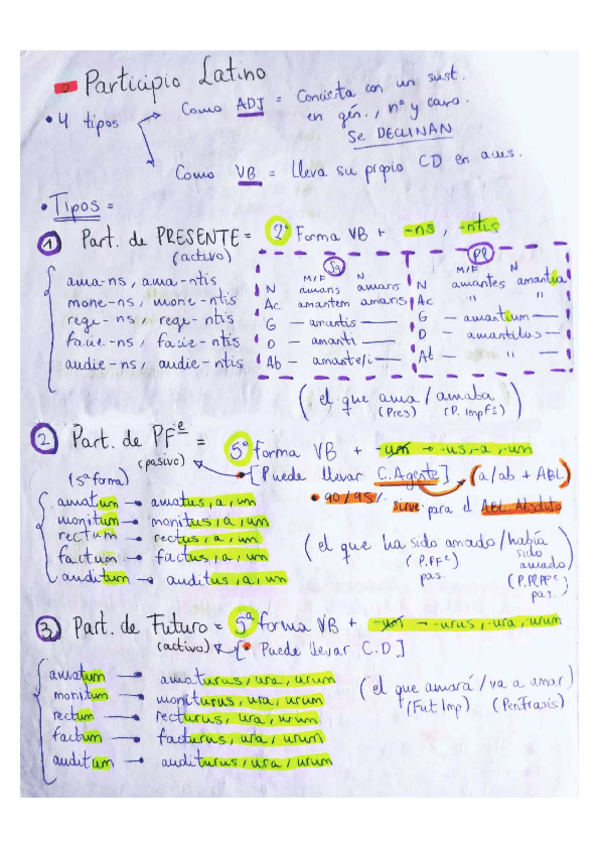 Participio Latino
• 4 tipos
Como ADJ = Concierta con un sust.
en gén., nº y caso.
Se DECLINAN
Como VB = Lleva su propio CD en acus.
• Tipos =
1 Part. de PRESENTE = 2ª Forma VB + -ns, -ntis
(activo)
ama-ns, ama-ntis
mone-ns, mone-ntis
rege-ns, rege-ntis
facie-ns, facie-ntis
audie-ns, audie-ntis
Sg
M/F N
N amans amans
Ac amantem amans
G — amantis —
D — amanti —
Ab — amante/i —
Pl
M/F N
N amantes amantia
Ac " "
G — amantium —
D — amantibus —
Ab — " —
(el que ama / amaba)
(Pres) (P. Impfº)
2 Part. de PFᵉ = 5ª forma VB + -um → -us, -a, -um
(pasivo) [Puede llevar C.Agente] (a/ab + ABL)
• 90/95% sirve para el ABL. Absoluto
(5ª forma)
amatum → amatus, a, um
monitum → monitus, a, um
rectum → rectus, a, um
factum → factus, a, um
auditum → auditus, a, um
(el que ha sido amado / había sido amado)
(P.PFᵉ pas.) (P.PlPFᵉ pas.)
3 Part. de Futuro = 5ª forma VB + -um → -urus, -ura, -urum
(activo) [• Puede llevar C.D]
amatum → amaturus, ura, urum
monitum → moniturus, ura, urum
rectum → recturus, ura, urum
factum → facturus, ura, urum
auditum → auditurus, ura, urum
(el que amará / va a amar)
(Fut Imp) (Perífrasis)